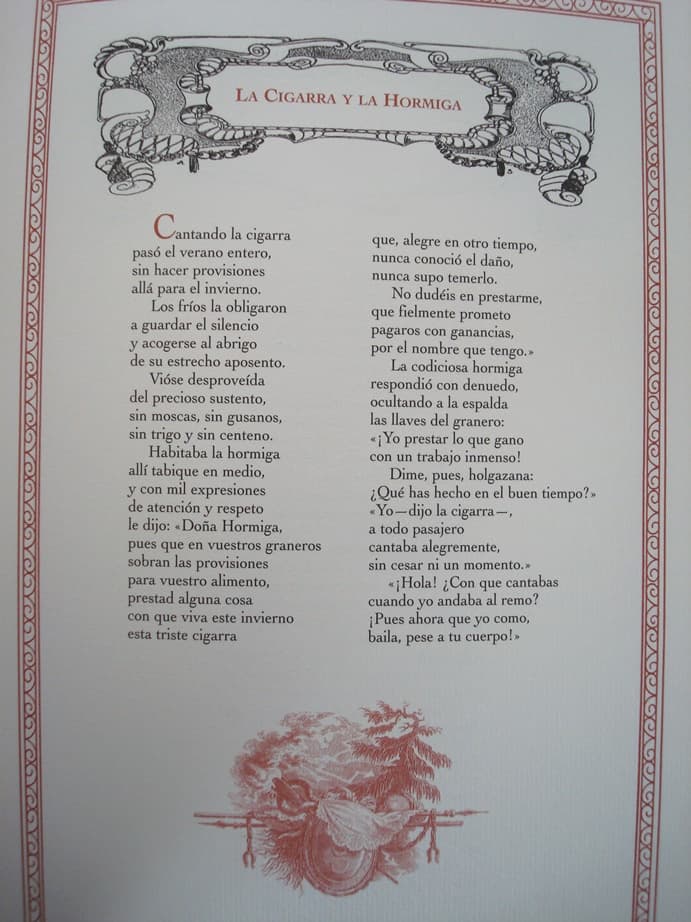 LA CIGARRA Y LA HORMIGA
Cantando la cigarra
pasó el verano entero,
sin hacer provisiones
allá para el invierno.
Los fríos la obligaron
a guardar el silencio
y acogerse al abrigo
de su estrecho aposento.
Vióse desproveída
del precioso sustento,
sin moscas, sin gusanos,
sin trigo y sin centeno.
Habitaba la hormiga
allí tabique en medio,
y con mil expresiones
de atención y respeto
le dijo: «Doña Hormiga,
pues que en vuestros graneros
sobran las provisiones
para vuestro alimento,
prestad alguna cosa
con que viva este invierno
esta triste cigarra
que, alegre en otro tiempo,
nunca conoció el daño,
nunca supo temerlo.
No dudéis en prestarme,
que fielmente prometo
pagaros con ganancias,
por el nombre que tengo.»
La codiciosa hormiga
respondió con denuedo,
ocultando a la espalda
las llaves del granero:
«¡Yo prestar lo que gano
con un trabajo inmenso!
Dime, pues, holgazana:
¿Qué has hecho en el buen tiempo?»
«Yo—dijo la cigarra—,
a todo pasajero
cantaba alegremente,
sin cesar ni un momento.»
«¡Hola! ¿Con que cantabas
cuando yo andaba al remo?
¡Pues ahora que yo como,
baila, pese a tu cuerpo!»